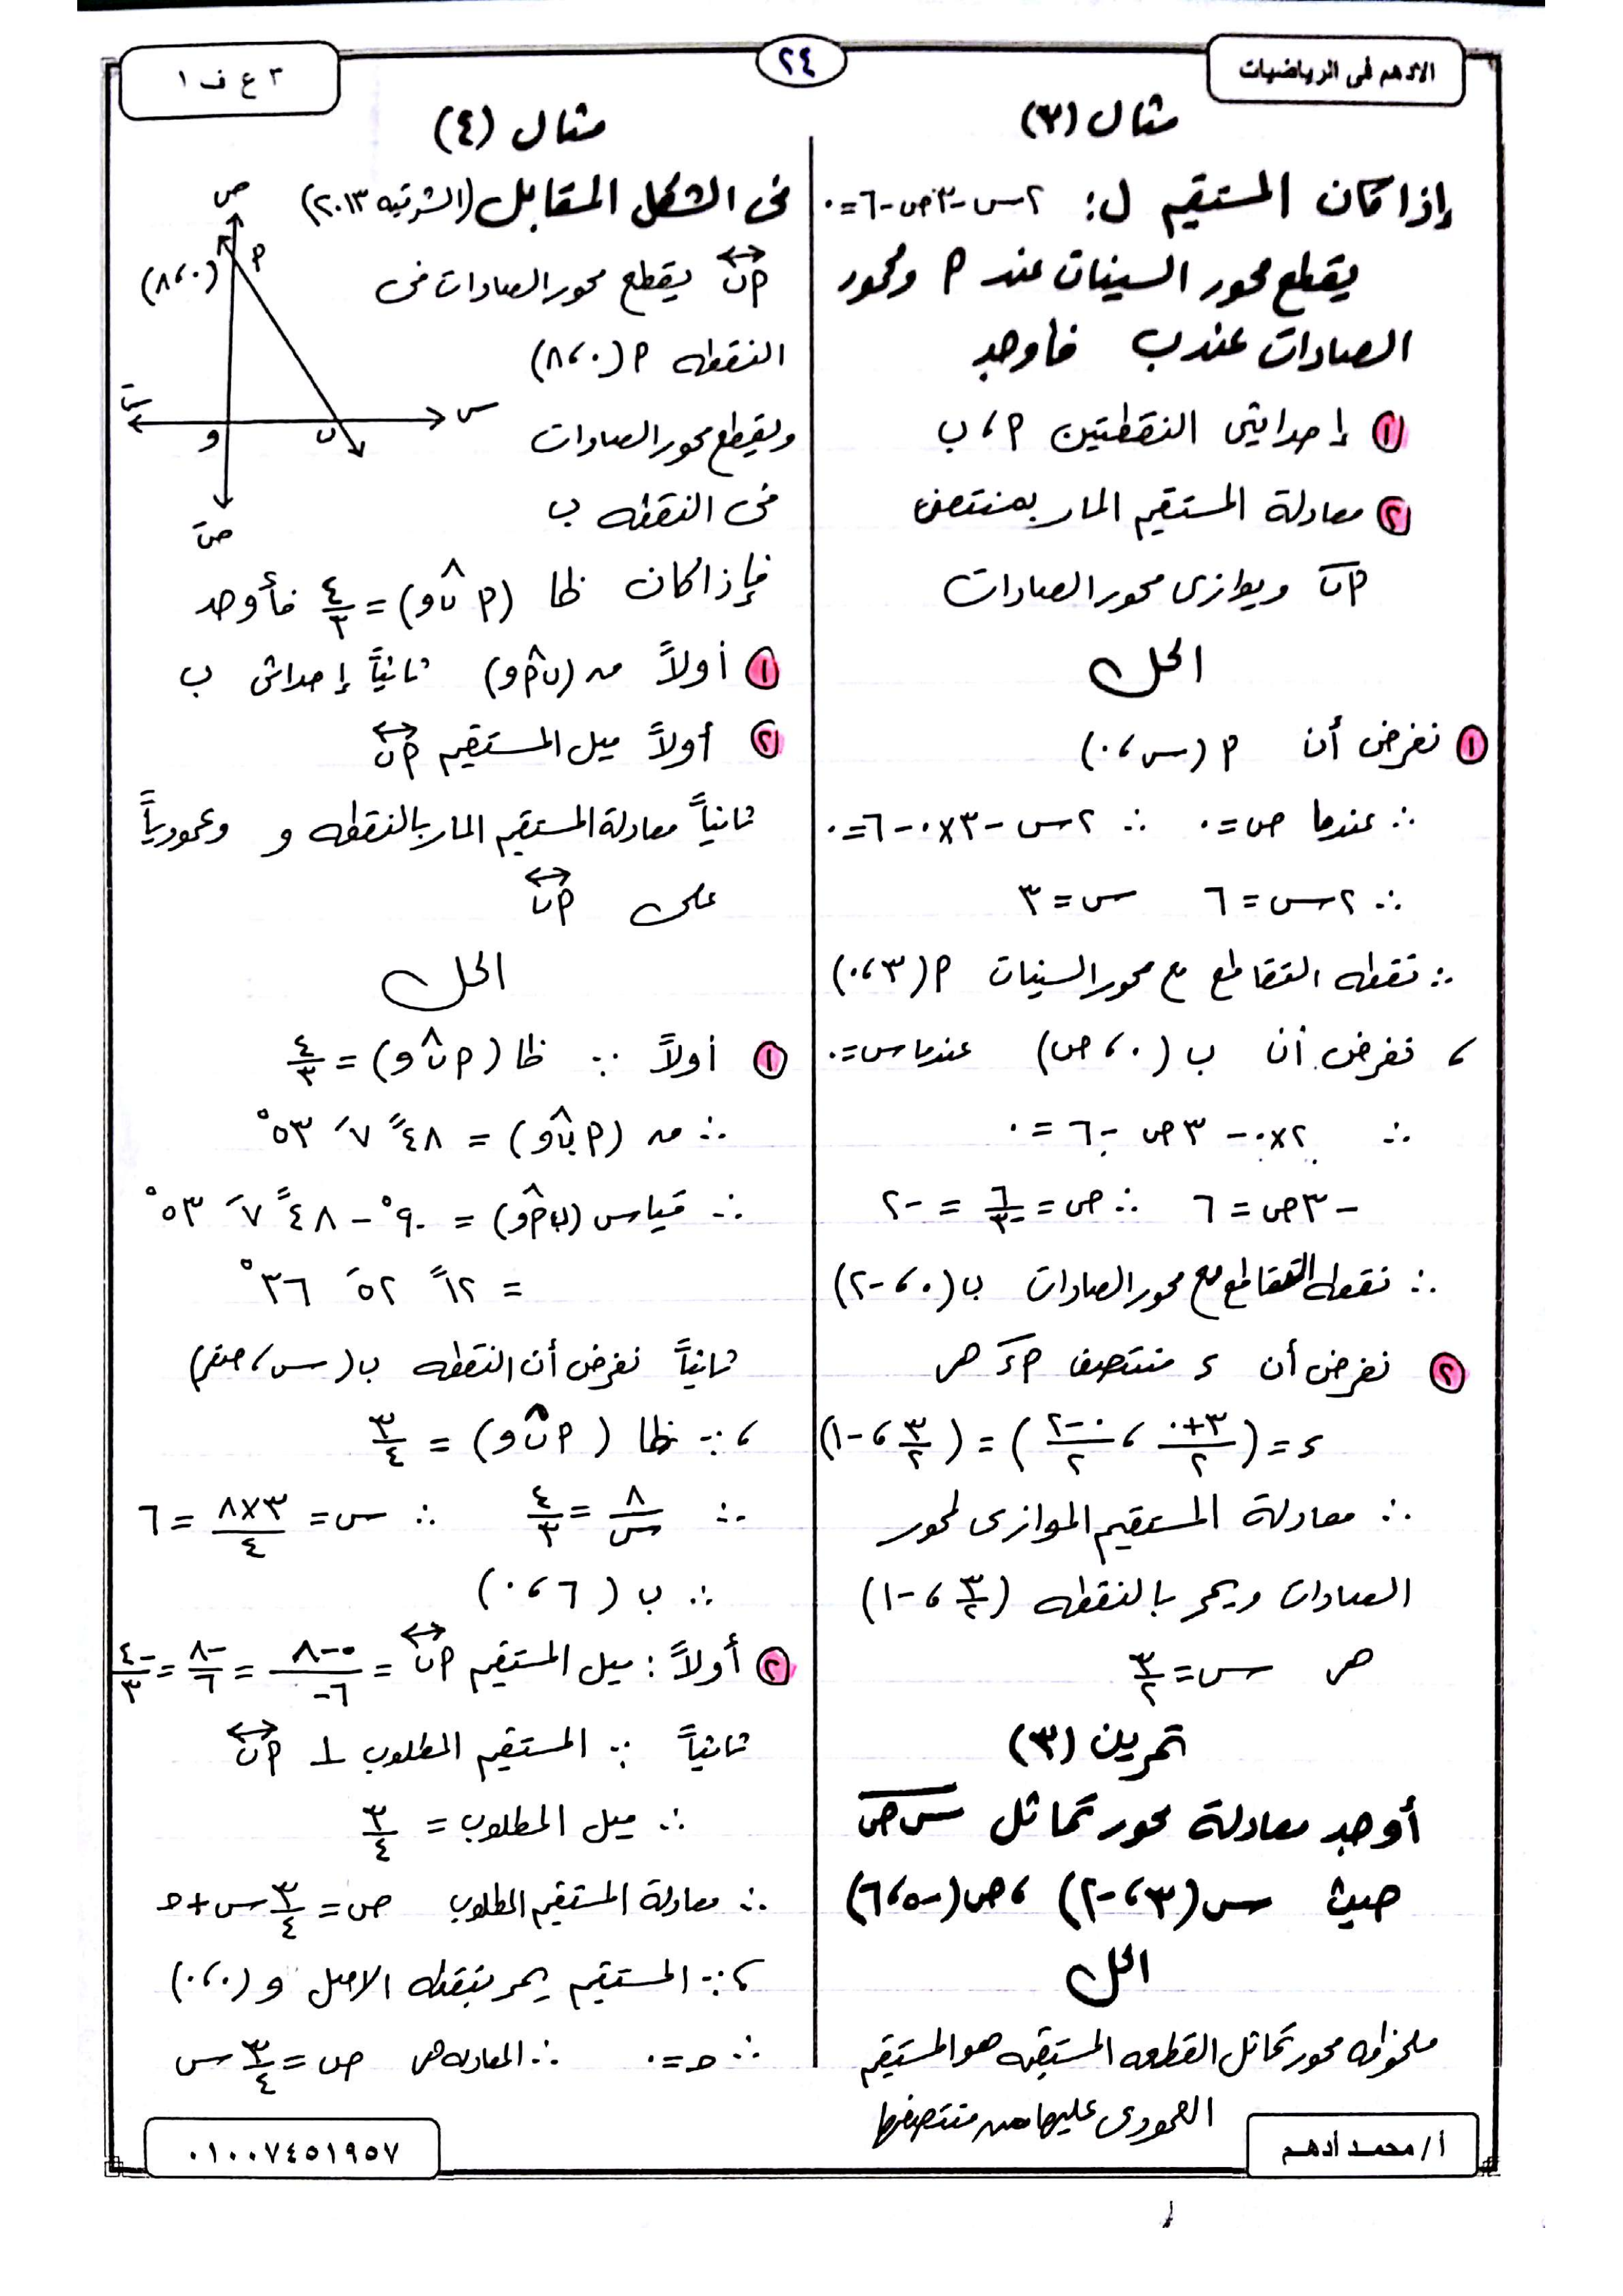 الأدهم فى الرياضيات
٢٤
٣ ع ف ١
مثال (٣)
إذا كان المستقيم ل: ٢س - ٣ص - ٦ = ٠
يقطع محور السينات عند P ومحور
الصادات عند ب فأوجد
١ إحداثيى النقطتين P ، ب
٢ معادلة المستقيم المار بمنتصف
Pب ويوازى محور الصادات
الحل
١ نفرض أن P (س ، ٠)
∴ عندما ص = ٠ ∴ ٢س - ٣×٠ - ٦ = ٠
∴ ٢س = ٦ س = ٣
∴ نقطه التقاطع مع محور السينات P (٣ ، ٠)
، نفرض أن ب (٠ ، ص) عندما س = ٠
∴ ٢×٠ - ٣ص - ٦ = ٠
-٣ص = ٦ ∴ ص = ٦/-٣ = -٢
∴ نقطه التقاطع مع محور الصادات ب (٠ ، -٢)
٢ نفرض أن ء منتصف Pب هى
ء = (٣+٠/٢ ، ٠-٢/٢) = (٣/٢ ، -١)
∴ معادلة المستقيم الموازى لمحور
الصادات ويمر بالنقطه (٣/٢ ، -١)
هى س = ٣/٢
تمرين (٣)
أوجد معادلة محور تماثل س ص
حيث س (٣ ، -٢) ، ص (-٥ ، ٦)
الحل
ملحوظه محور تماثل القطعه المستقيمه هو المستقيم
العمودى عليها من منتصفها
مثال (٤)
فى الشكل المقابل (الشرقيه ٢٠١٣)
Pب يقطع محور الصادات فى
النقطه P (٠ ، ٨)
ويقطع محور الصادات
فى النقطه ب
ص
P
(٠ ، ٨)
سَ
س
و
ب
صَ
فإذا كان ظا (P ب و) = ٤/٣ فأوجد
١ أولاً ق (ب P و) ثانياً إحداثى ب
٢ أولاً ميل المستقيم Pب
ثانياً معادلة المستقيم المار بالنقطه و وعمودياً
على Pب
الحل
١ أولاً ∵ ظا (P ب و) = ٤/٣
∴ ق (P ب و) = ٤٨ً ٧َ ٥٣°
∴ قياس (ب P و) = ٩٠° - ٤٨ً ٧َ ٥٣°
= ١٢ً ٥٢َ ٣٦°
ثانياً نفرض أن النقطه ب (س ، صفر)
، ∵ ظا (P ب و) = ٣/٤
∴ ٨/س = ٤/٣ ∴ س = ٣×٨/٤ = ٦
∴ ب (٦ ، ٠)
٢ أولاً : ميل المستقيم Pب = ٠-٨/٦- = -٨/٦ = -٤/٣
ثانياً ∵ المستقيم المطلوب ⊥ Pب
∴ ميل المطلوب = ٣/٤
∴ معادلة المستقيم المطلوب ص = ٣/٤ س + حـ
، ∵ المستقيم يمر بنقطه الاصل و (٠ ، ٠)
∴ حـ = ٠ ∴ المعادله هى ص = ٣/٤ س
أ/ محمد أدهم
٠١٠٠٧٤٥١٩٥٧